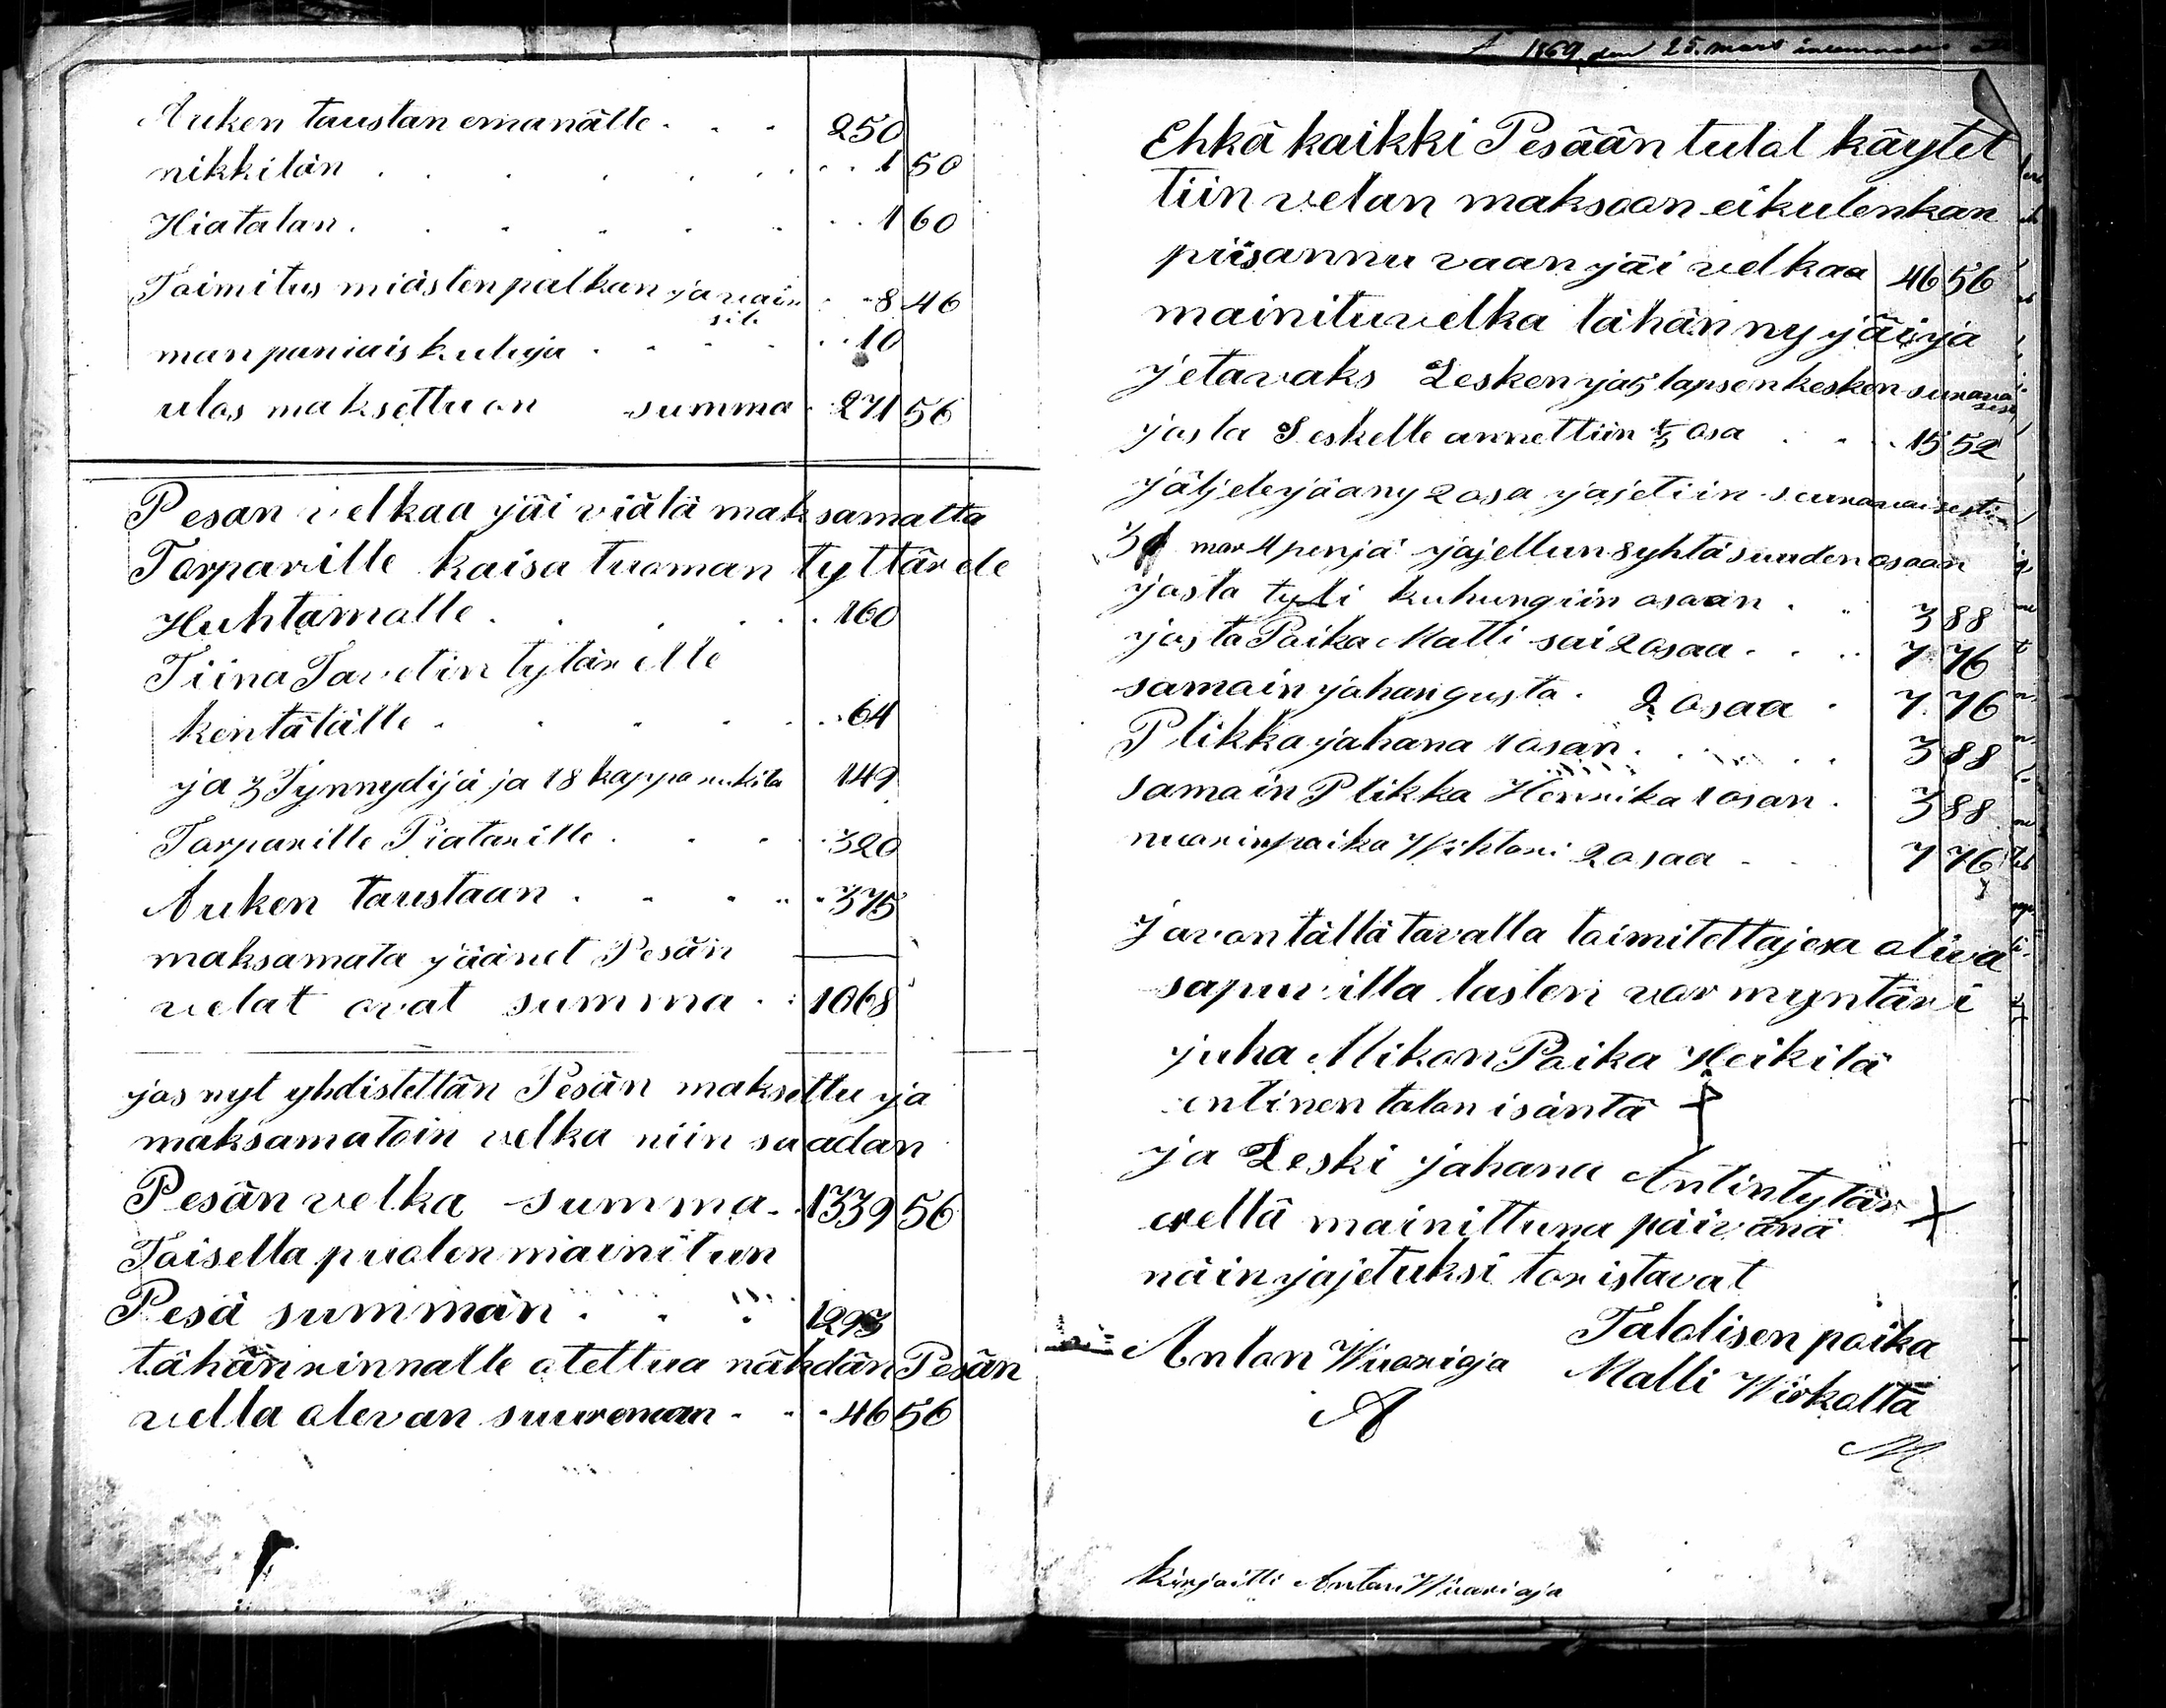 Auken taustan emanälle 250
nikkilän 1 50
Hiatalan 1 60
Toimitus miästen palkan ja vaiva 8 46
man paniais kuluja 10
ulos maksettu on summa 271 56
Pesan velkaa jäi viälä maksamatta
Torparille kaisa tuoman tyttärele
Huhtamalle 160
Tiina Tavetin tytärelle
kentätälle 64
ja 3 Tynnydijä ja 18 kappa rukita 149
Torparille Piatarille 320
Auken taustaan 375
maksamata jäänet Pesän
velat ovat summa 1068
jos nyt yhdistettän Pesän maksettu ja
maksamatoin velka niin saadan
Pesän velka summa 1339 56
Toisella puolen mainitun
Pesä summan 1293
tähän rinnalle otettua nähdän Pesän
vella olevan suureman 46 56
A 1869 den 25. mars
Ehkä kaikki Pesään tulat käytet
tiin velan maksoon eikulenkan
piisannu vaan jäi velkaa 46 56
mainitu velka tähän ny jäi ja
jetavaks Lesken ja 5 lapsen kesken
josta Leskelle annettiin 1/3 osa 15 52
jäljelejääny 2 osa jajetiin seuravaisesti
31 mar 4 penjä jajellun 8 yhtä suuden osaan
josta tyli kuhungiin osaan 3 88
josta Poika Matti sai 2 osaa 7 76
samain johan gusta 2 osaa 7 76
Plikka johana 1 osan 3 88
samain Plikka Henrika 1 osan 3 88
nuorin poika Wihtori 2 osaa 7 76
javon tällä tavalla toimitettajesa oliva
sapuvilla lasten var myntäri
juha Mikon Poika Heikilä
entinen talon isäntä
ja Leski johana Antintytär
evellä mainittuna päivänä
näin jajetuksi toristavat
Talolisen poika
Anton Wuorioja Matti Wirkaltta
A
M
kirjoitti Anton Wuorioja